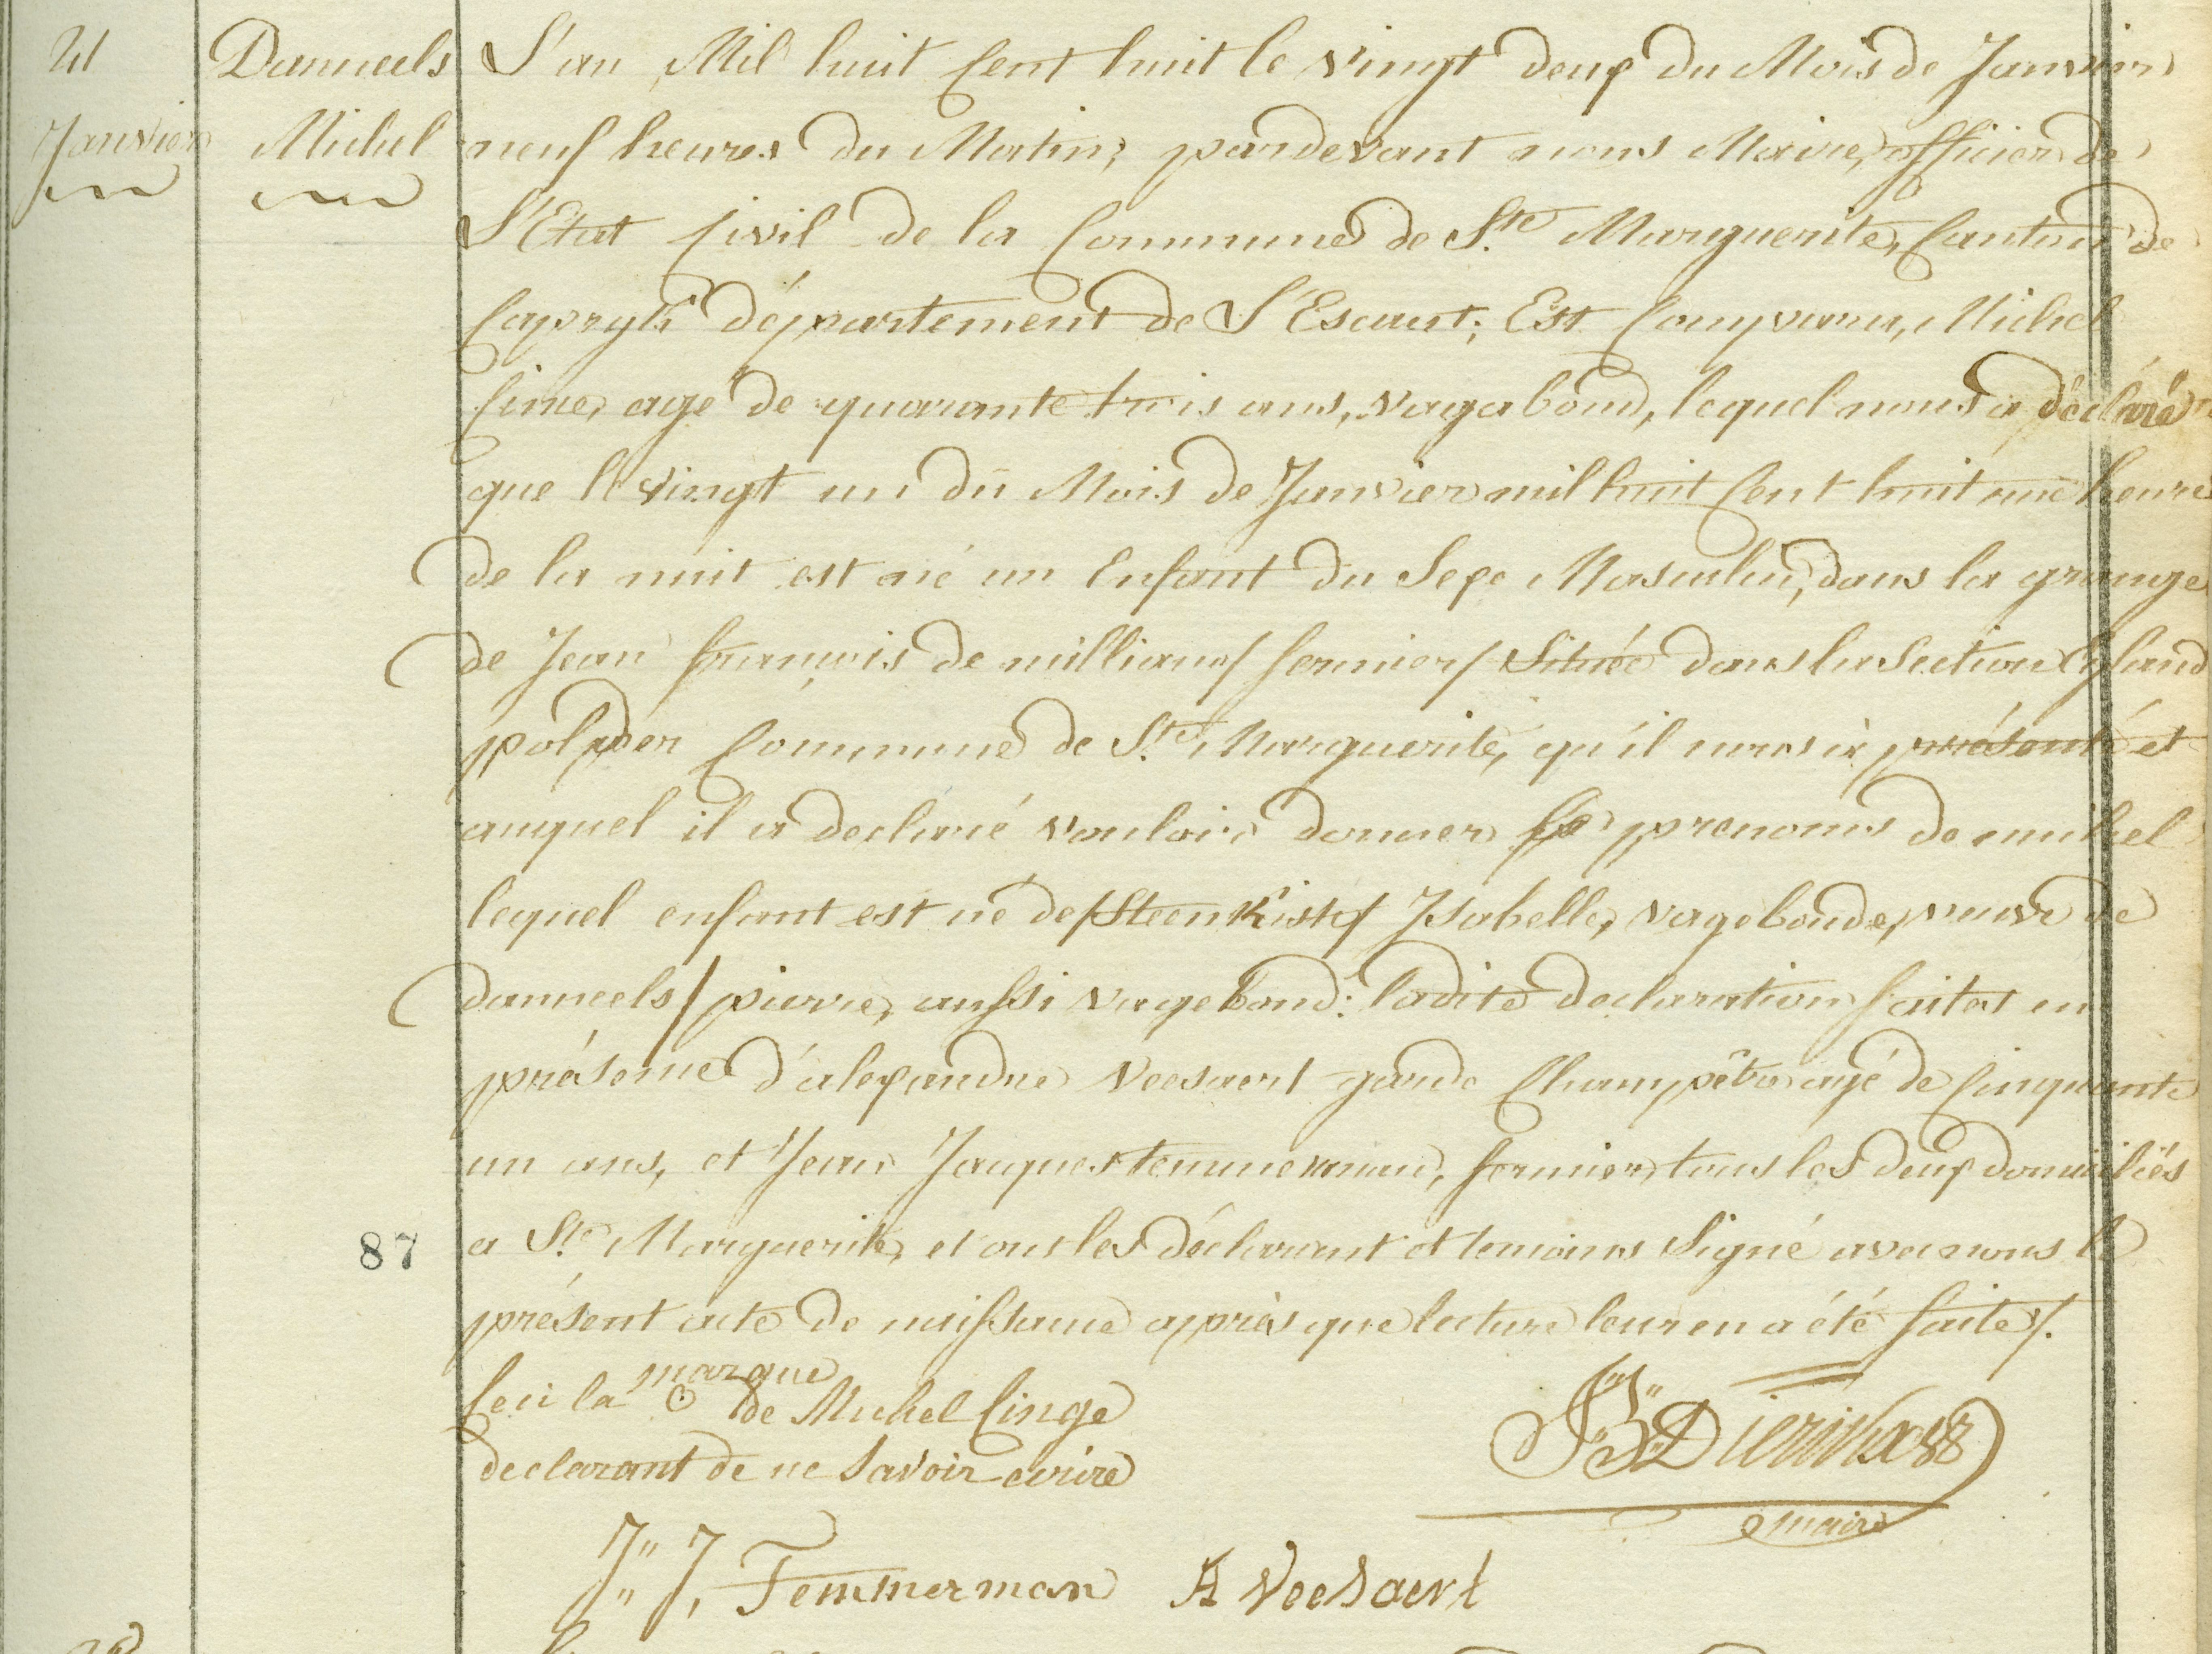 21
Janvier
Danneels
Michel
L'an Mil huit Cent huit le vingt deux du Mois de Janvier
neuf heures du Matin; pardevant nous Maire, officier de
L'Etat Civil de la Commune de Ste Marguerite, Canton de
Capryk département de L'Escaut; Est Comparu, Michel
agé de quarante trois ans, vagabond, lequel nous a déclaré
que le vingt un du Mois de Janvier mil huit Cent huit une heure
de la nuit est né un Enfant du Sexe Masculin, dans la grange
de Jean francois de milliano / fermier / Située dans la Section
polder Commune de Ste Marguerite, qu'il nous à présenté et
auquel il a declaré vouloir donner prenoms de michel
lequel enfant est né de / Steenkiste / Isabelle, vagebonde, veuve de
danneels / pierre, aussi vagebond: ladite declaration faites en
présence d'alexandre Veesaert garde Champêtre agé de Cinquante
un ans, et Jean Jacques temmerman, fermier, tous les deux domiciliés
a Ste Marguerite, et ont les déclarant et temoins Signé avec nous le
87
présent acte de naissance après que lecture leur en a été faite /.
Ceci la marque de Michel Cinge
declarant de ne Savoir ecrire
J: B: Dierikx
maire
J" J, Temmerman A Veesaert